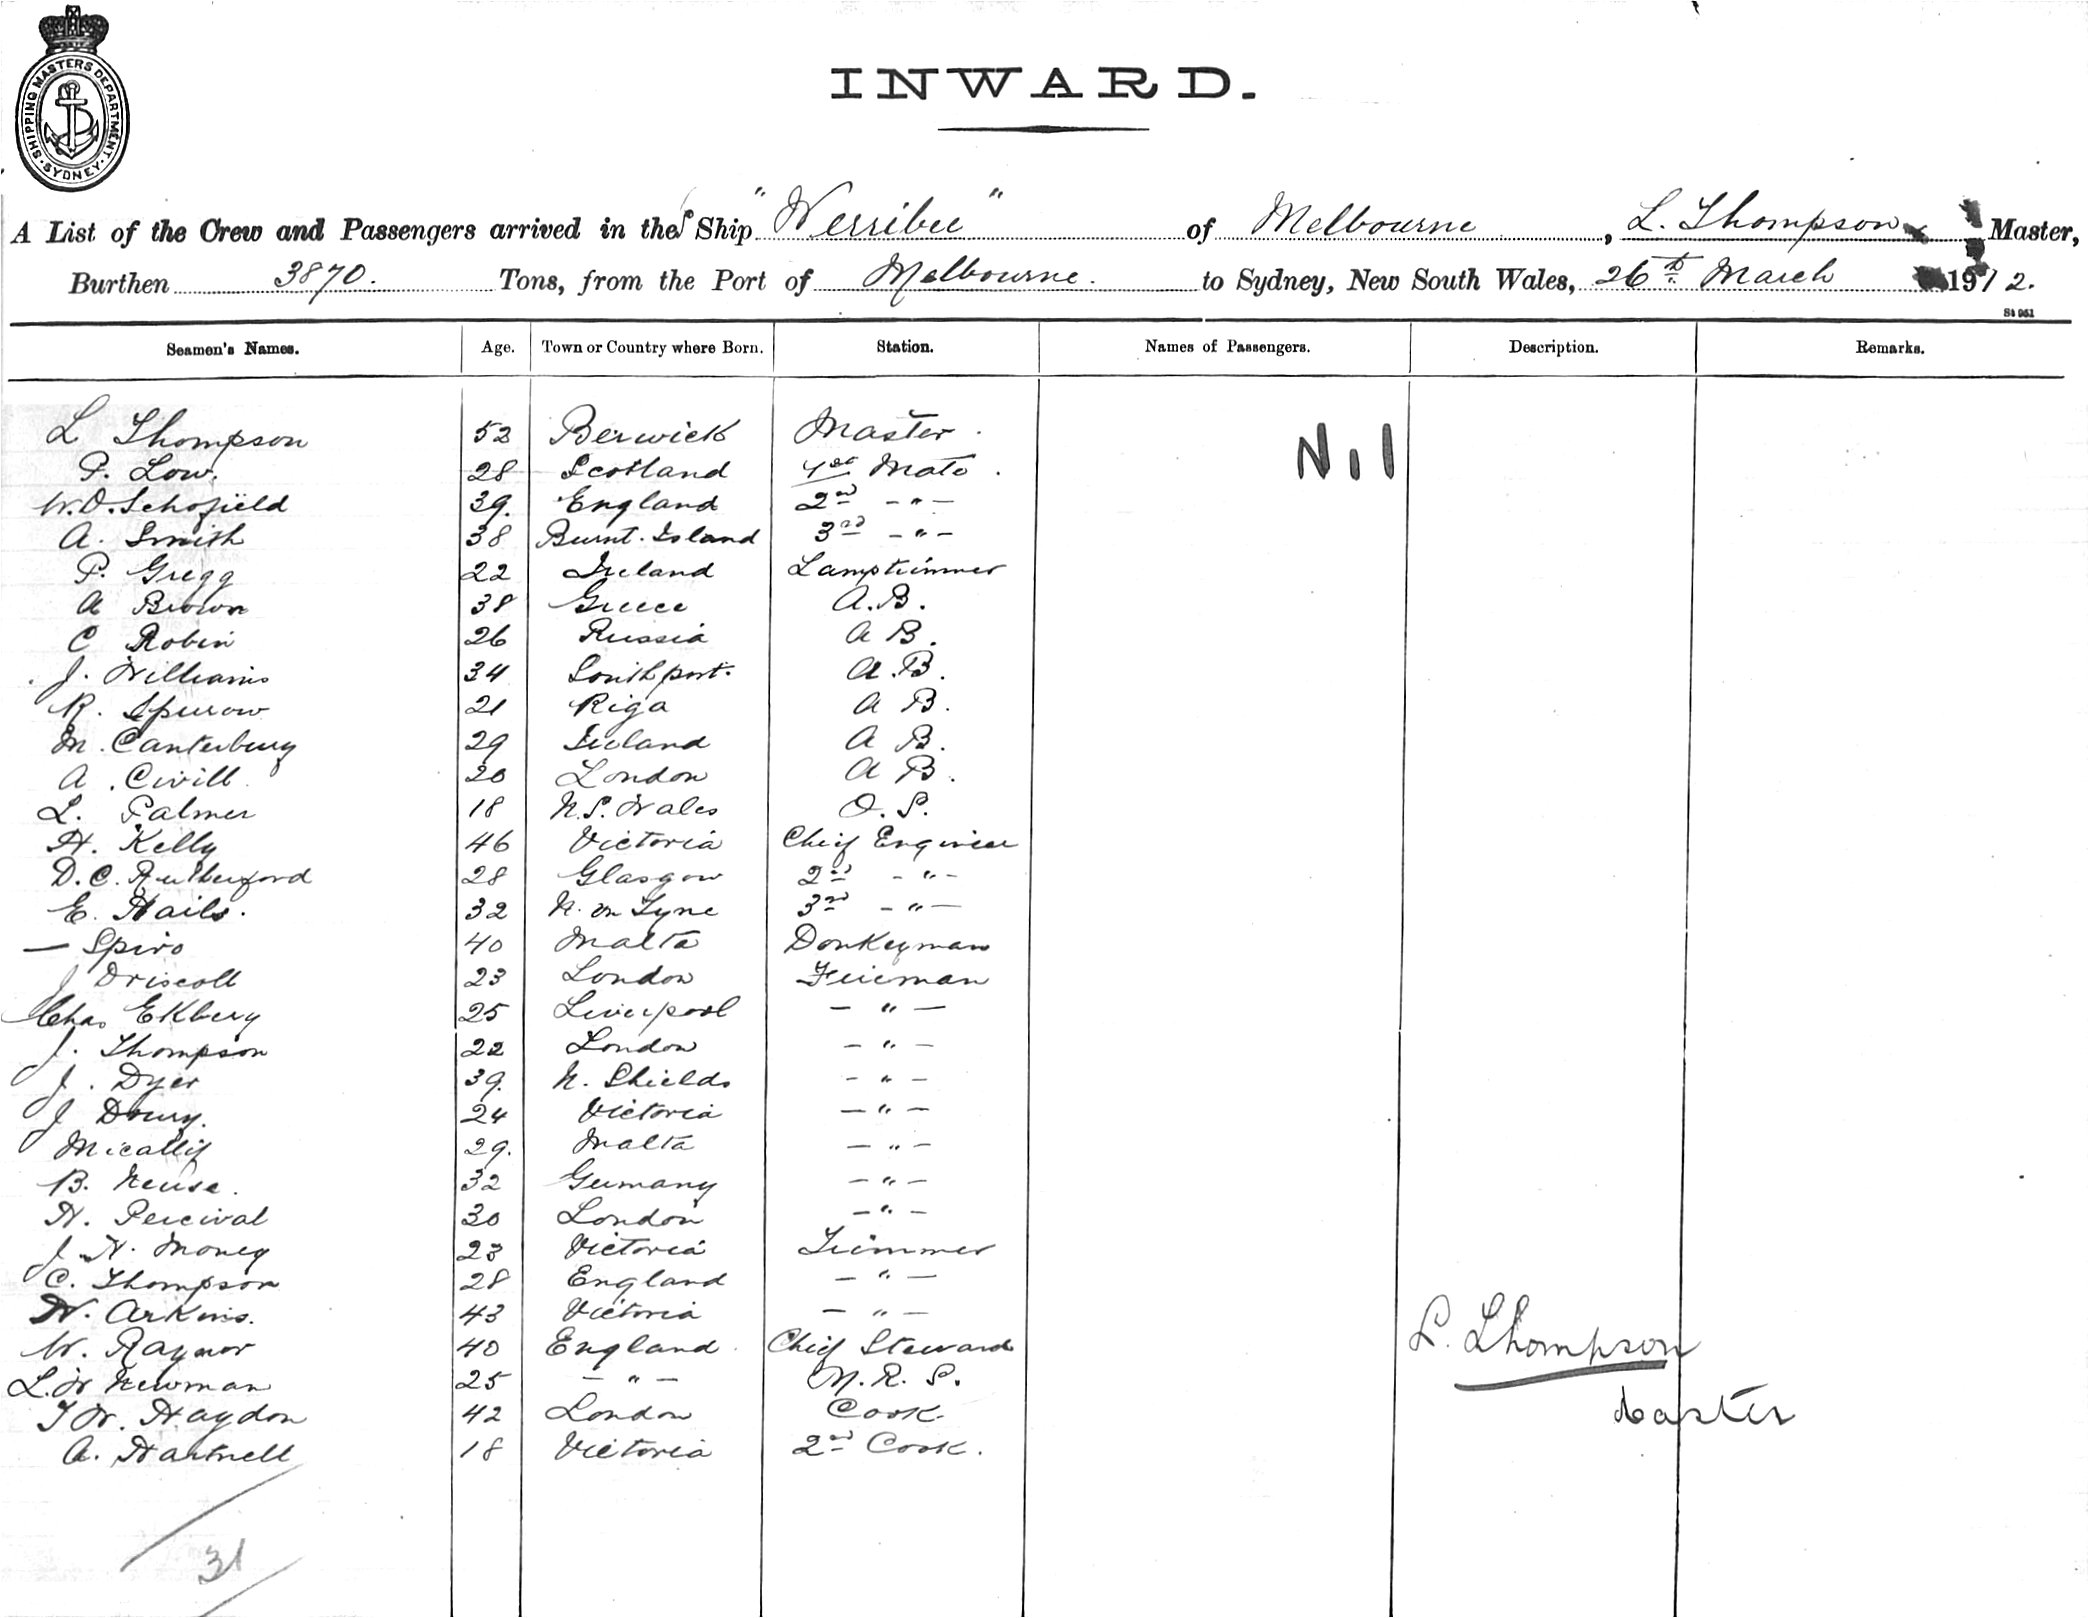 SHIPPING MASTERS DEPARTMENT · SYDNEY ·
INWARD.
A List of the Crew and Passengers arrived in the S Ship "Werribee" of Melbourne, L. Thompson Master,
Burthen 3870. Tons, from the Port of Melbourne. to Sydney, New South Wales, 26th March 1912.
St 951
Seamen's Names. Age. Town or Country where Born. Station. Names of Passengers. Description. Remarks.
L Thompson 52 Berwick Master. Nil
P. Low. 28 Scotland 1st Mate.
W.O. Schofield 39. England 2nd - " -
A. Smith 38 Burnt. Island 3rd - " -
P. Gregg 22 Ireland Lamptrimmer
A Brown 38 Greece A.B.
C Robin 26 Russia A B.
J. Williams 34 Southport. A.B.
R. Spurow 21 Riga A B.
M. Canterbury 29 Ireland A B.
A. Civill 20 London A B.
L. Palmer 18 N.S. Wales O.S.
H. Kelly 46 Victoria Chief Engineer
D.C. Rutherford 28 Glasgow 2nd - " -
E. Hails. 32 N. on Tyne 3rd - " -
— Spiro 40 Malta Donkeyman
J Driscoll 23 London Fireman
Chas Ekberg 25 Liverpool - " -
J. Thompson 22 London - " -
J. Dyer 39. N. Shields - " -
J Doury. 24 Victoria - " -
Micallif 29. Malta - " -
B. Neuse. 32 Germany - " -
H. Percival 30 London - " -
J H. Money 23 Victoria Trimmer
C. Thompson 28 England - " -
W. Arkins. 43 Victoria - " -
W. Raynor 40 England. Chief Steward
L.W Newman 25 - " - M.R.S.
T W. Haydon 42 London Cook
A. Hartnell 18 Victoria 2nd Cook.
L. Thompson
Master
31